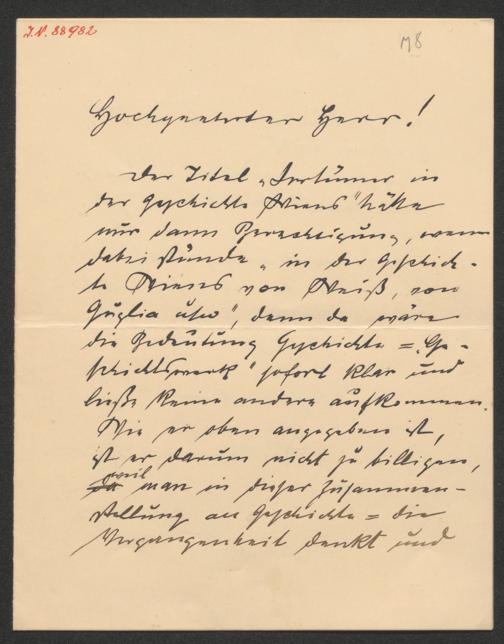 I.N. 88982
M8
Hochgeehrter Herr!
Der Titel „Irrtümer in
der Geschichte Wiens" hätte
nur dann Berechtigung, wenn
dabei stünde „in der Geschich-
te Wiens von Weiß, von
Guglia usw", denn da wäre
die Bedeutung Geschichte = „Ge-
schichtswerk" sofort klar und
ließe keine andere aufkommen.
Wie er oben angegeben ist,
ist er darum nicht zu billigen,
weil
da man in dieser Zusammen-
stellung an Geschichte = die
Vergangenheit denkt und